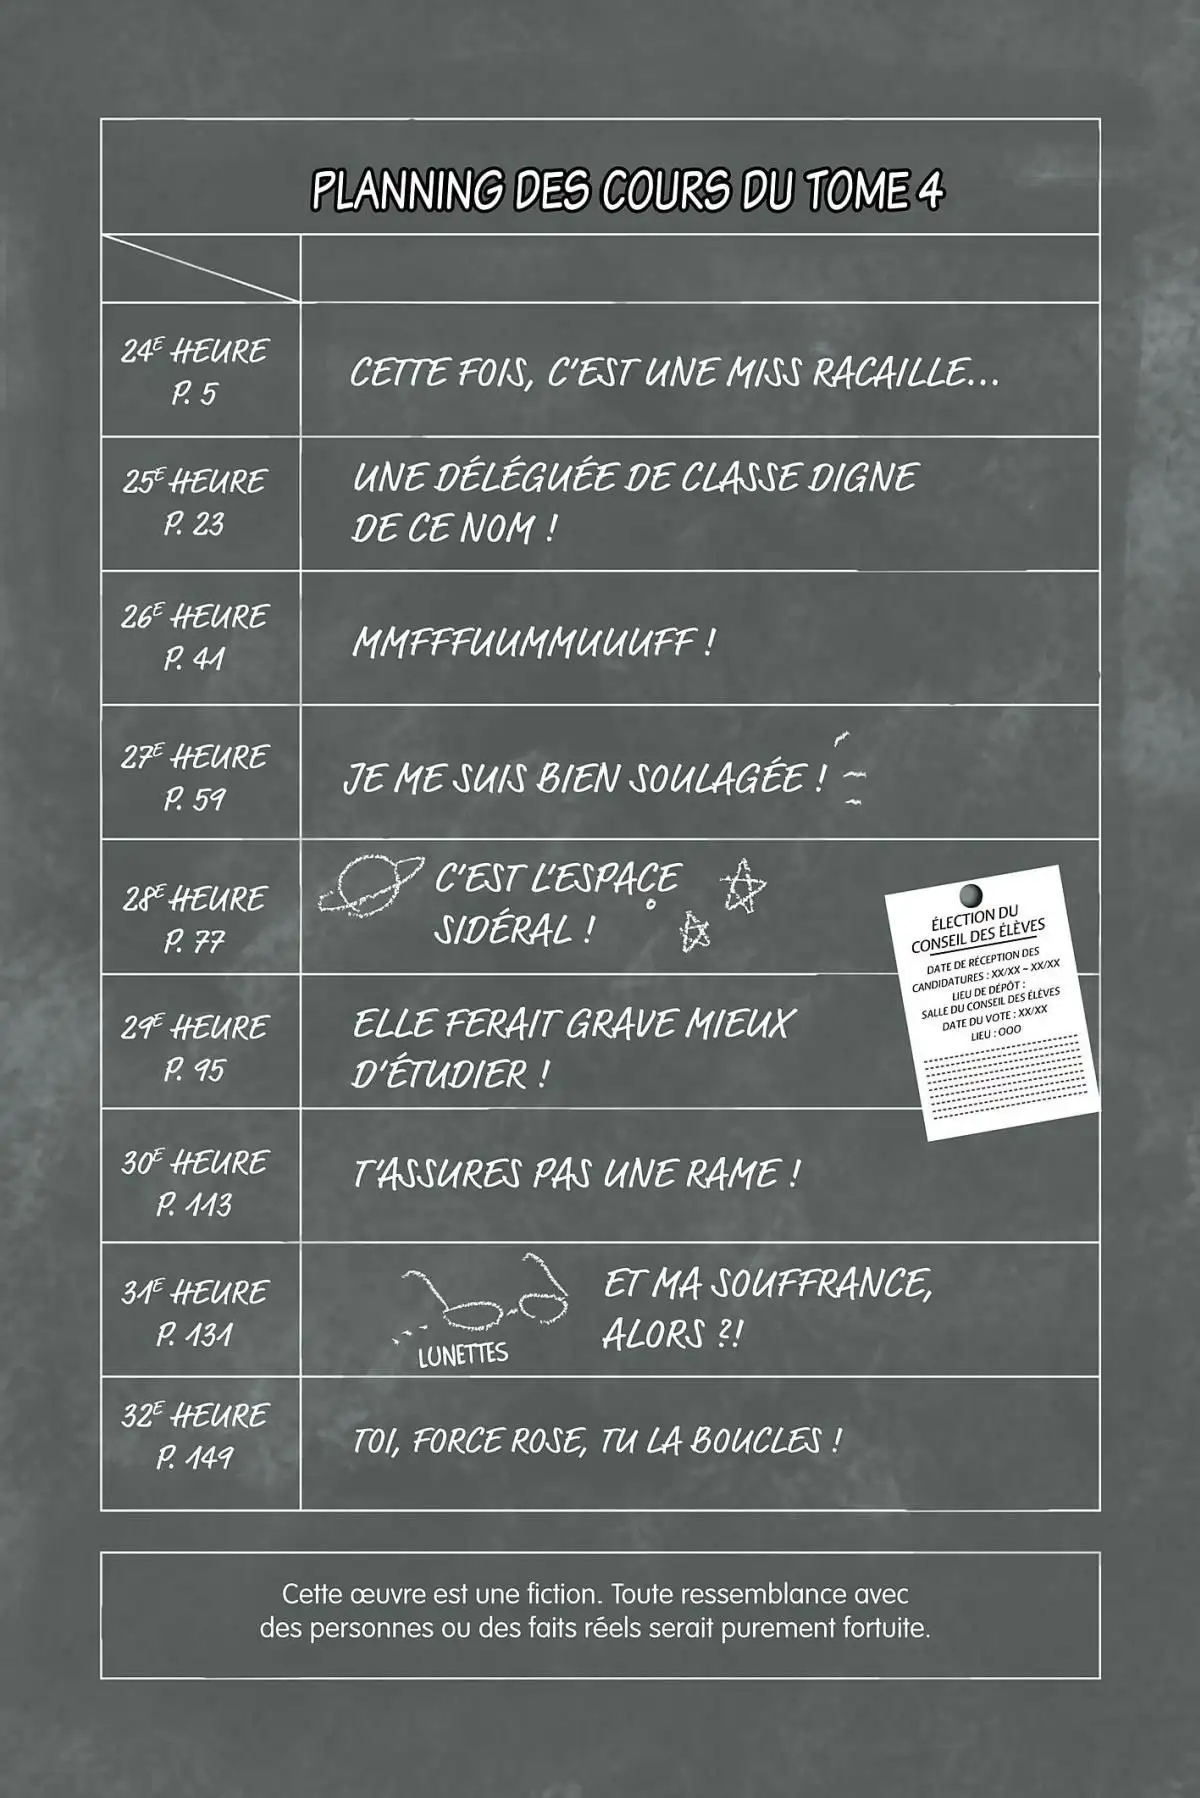 PLANNING DES COURS DU TOME 4
24E HEURE
P. 5
CETTE FOIS, C'EST UNE MISS RACAILLE...
25E HEURE
P. 23
UNE DÉLÉGUÉE DE CLASSE DIGNE
DE CE NOM !
26E HEURE
P. 41
MMFFFUUMMUUUFF !
27E HEURE
P. 59
JE ME SUIS BIEN SOULAGÉE !
28E HEURE
P. 77
C'EST L'ESPACE
SIDÉRAL !
ÉLECTION DU
CONSEIL DES ÉLÈVES
DATE DE RÉCEPTION DES
CANDIDATURES : XX/XX ~ XX/XX
LIEU DE DÉPÔT :
SALLE DU CONSEIL DES ÉLÈVES
DATE DU VOTE : XX/XX
LIEU : OOO
29E HEURE
P. 95
ELLE FERAIT GRAVE MIEUX
D'ÉTUDIER !
30E HEURE
P. 113
T'ASSURES PAS UNE RAME !
31E HEURE
P. 131
LUNETTES
ET MA SOUFFRANCE,
ALORS ?!
32E HEURE
P. 149
TOI, FORCE ROSE, TU LA BOUCLES !
Cette œuvre est une fiction. Toute ressemblance avec
des personnes ou des faits réels serait purement fortuite.